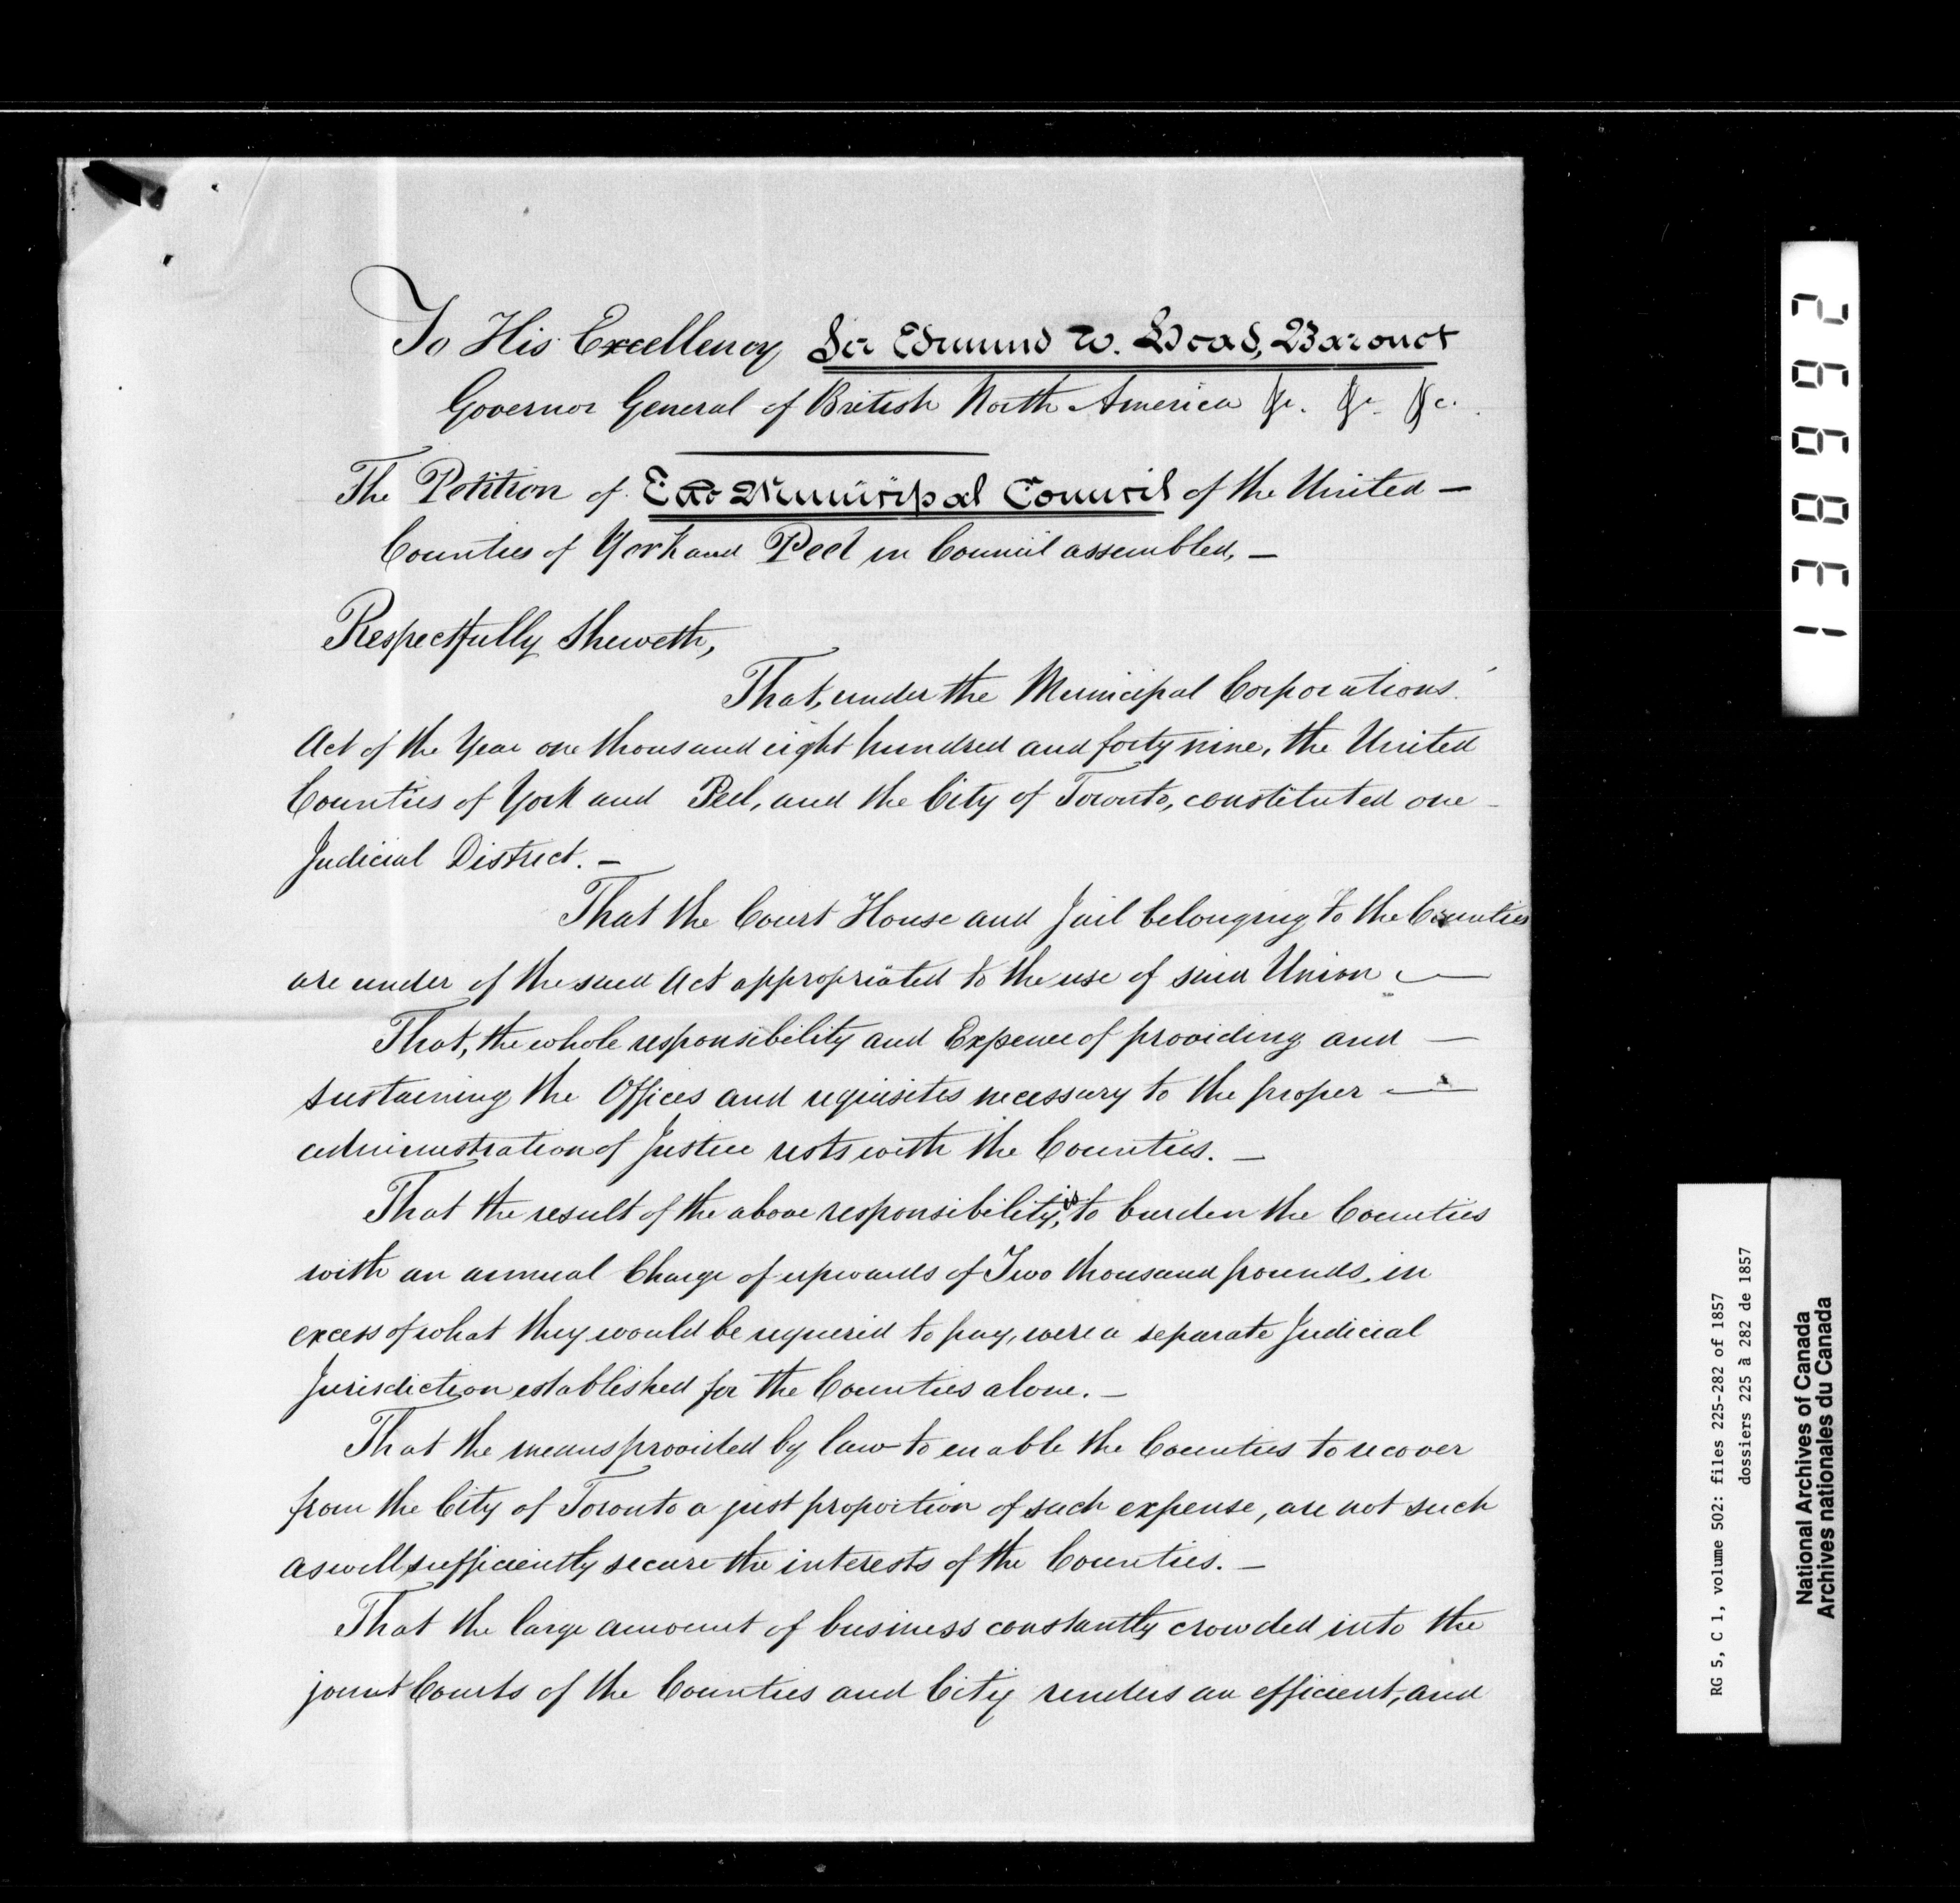 To His Excellency Sir Edmund W. Head, Baronet
Governor General of British North America &c. &c. &c.
The Petition of The Municipal Council of the United —
Counties of York and Peel in Council assembled, —
Respectfully Sheweth,
That, under the Municipal Corporations'
Act of the Year one thousand eight hundred and forty nine, the United
Counties of York and Peel, and the City of Toronto, constituted one —
Judicial District. —
That the Court House and Jail belonging to the Counties
are under of the said Act appropriated to the use of said Union —
That, the whole responsibility and Expence of providing and —
sustaining the Offices and requisites necessary to the proper —
administration of Justice rests with the Counties. —
That the result of the above responsibility, is to burden the Counties
with an annual Charge of upwards of Two thousand pounds, in
excess of what they would be required to pay, were a separate Judicial
Jurisdiction established for the Counties alone. —
That the means provided by law to enable the Counties to recover
from the City of Toronto a just proportion of such expense, are not such
as will sufficiently secure the interests of the Counties. —
That the large amount of business constantly crowded into the
joint Courts of the Counties and City renders an efficient, and
138992
RG 5, C 1, volume 502: files 225-282 of 1857
dossiers 225 à 282 de 1857
National Archives of Canada
Archives nationales du Canada